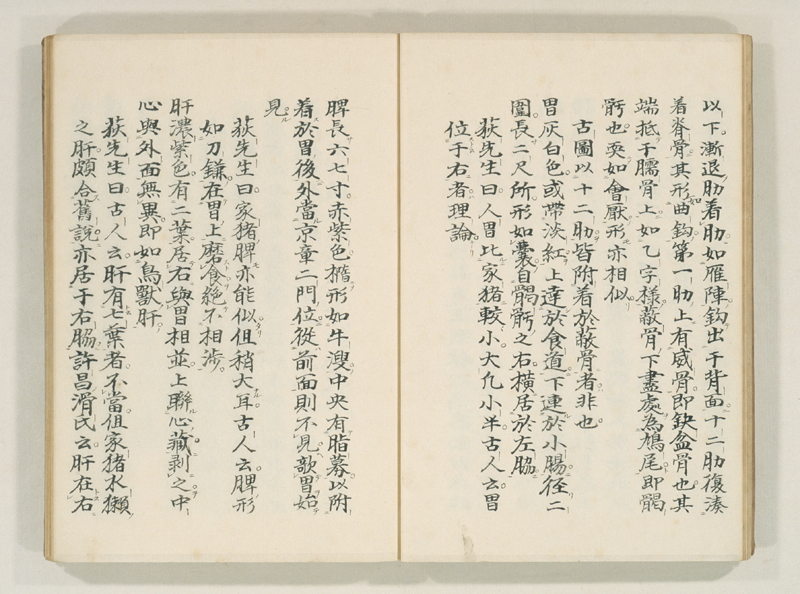 以下漸退肋着肋如雁陳鈎出于背面十二肋復湊
着脊骨其形如曲鈎第一肋上有威骨即缺盆骨也其
端抵于臑骨上如乙字様蔽骨下盡處為鳩尾即䯏
骬也耎如會厭形亦相似
古圖以十二肋皆附着於蔽骨者非也
胃灰白色或帶淡紅上達於食道下連於小腸径二
圍長二尺所形如囊自䯏骬之右横居於左脇
荻先生曰人胃比家猪較小大凢小半古人云胃
位于右者理論
脾長六七寸赤紫色楕形如牛溲中央有脂募以附
着於胃後外當京章二門位從前面則不見歌胃始
見
荻先生曰家猪脾亦能似但稍大耳古人云脾形
如刀鎌在胃上磨食絶不相渉
肝濃紫色有二葉居右與胃相並上聯心藏剥之中
心與外面無異即如鳥獸肝
荻先生曰古人云肝有七葉者不當但家猪水獺
之肝頗合舊説亦居于右脇許昌滑氏云肝在右